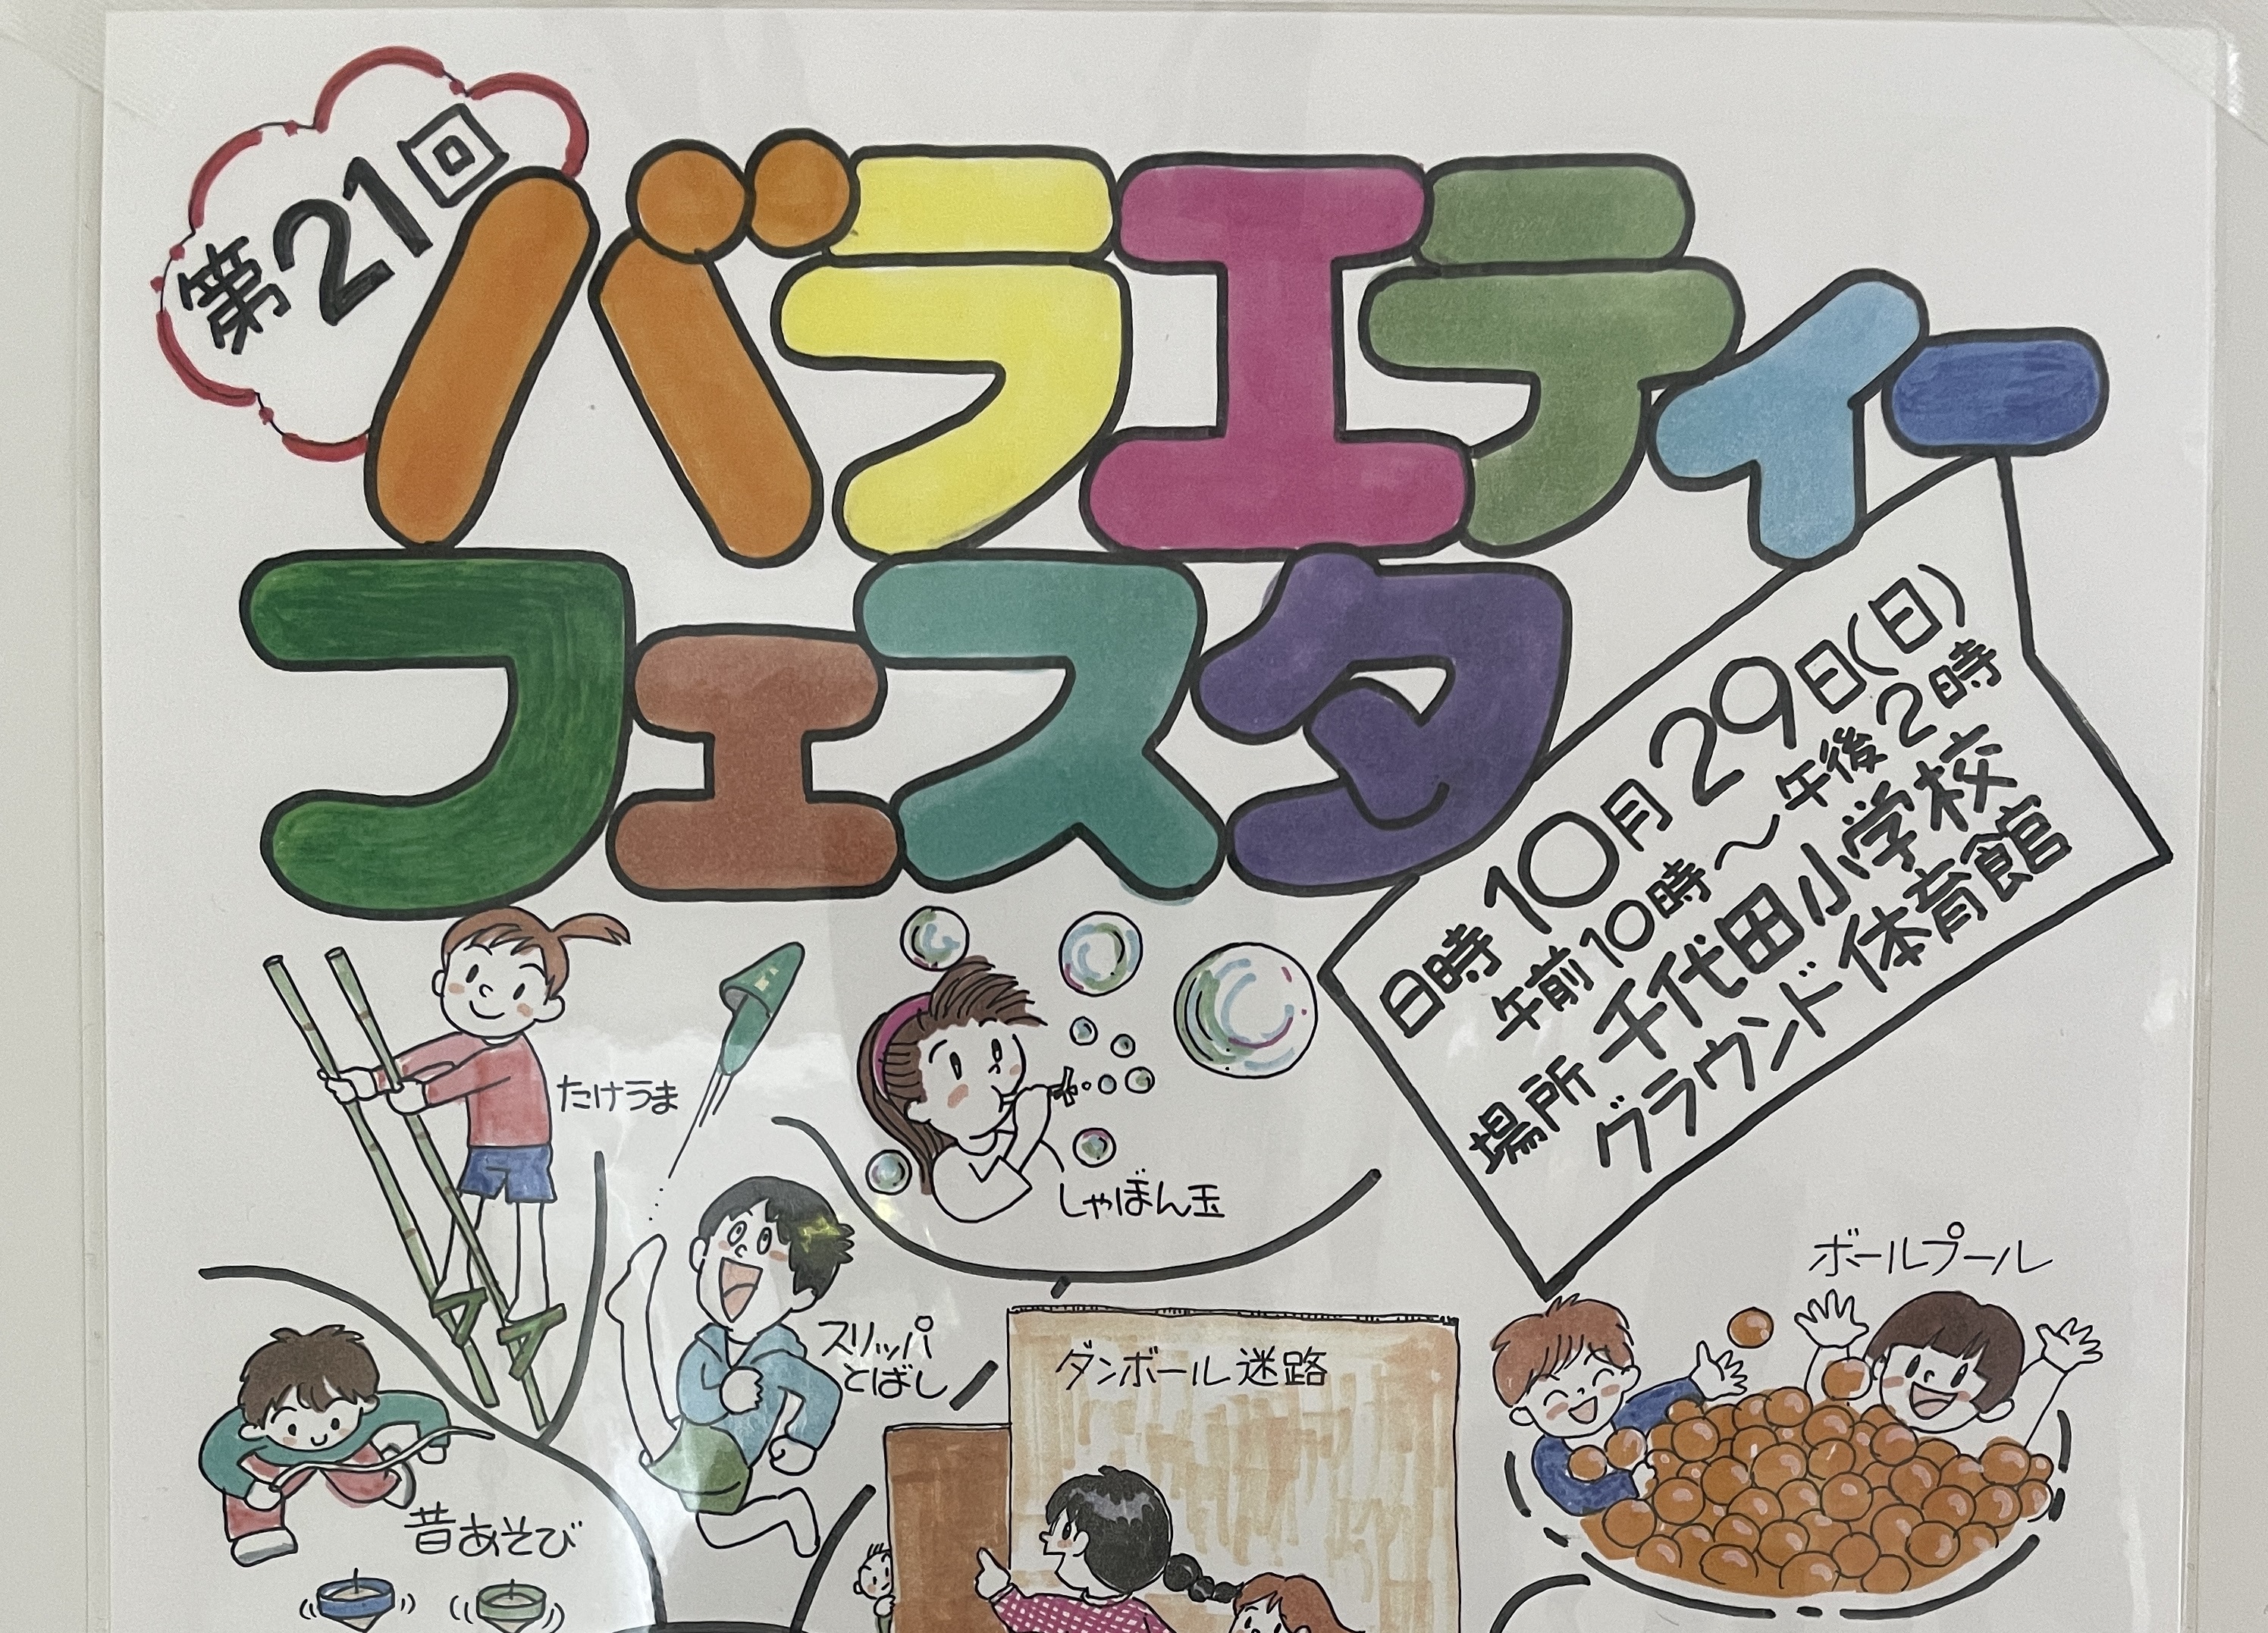 第21回
バラエティー
フェスタ
日時 10月29日(日)
午前10時～午後2時
場所 千代田小学校
グラウンド 体育館
たけうま
しゃぼん玉
スリッパ
とばし
ボールプール
ダンボール迷路
昔あそび